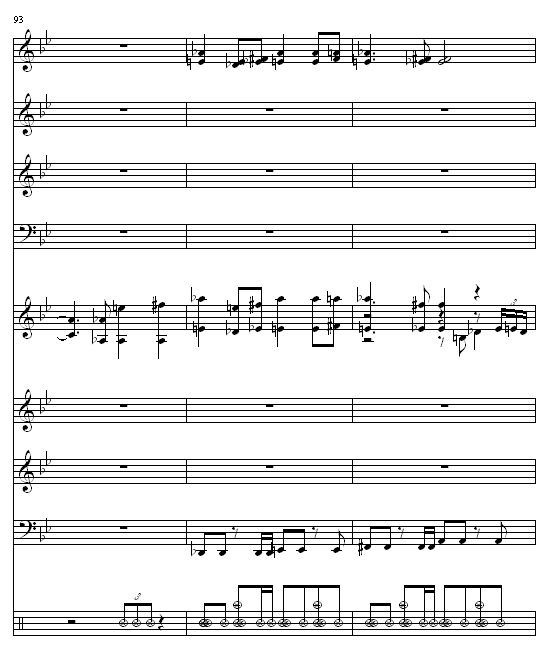 93
3
3